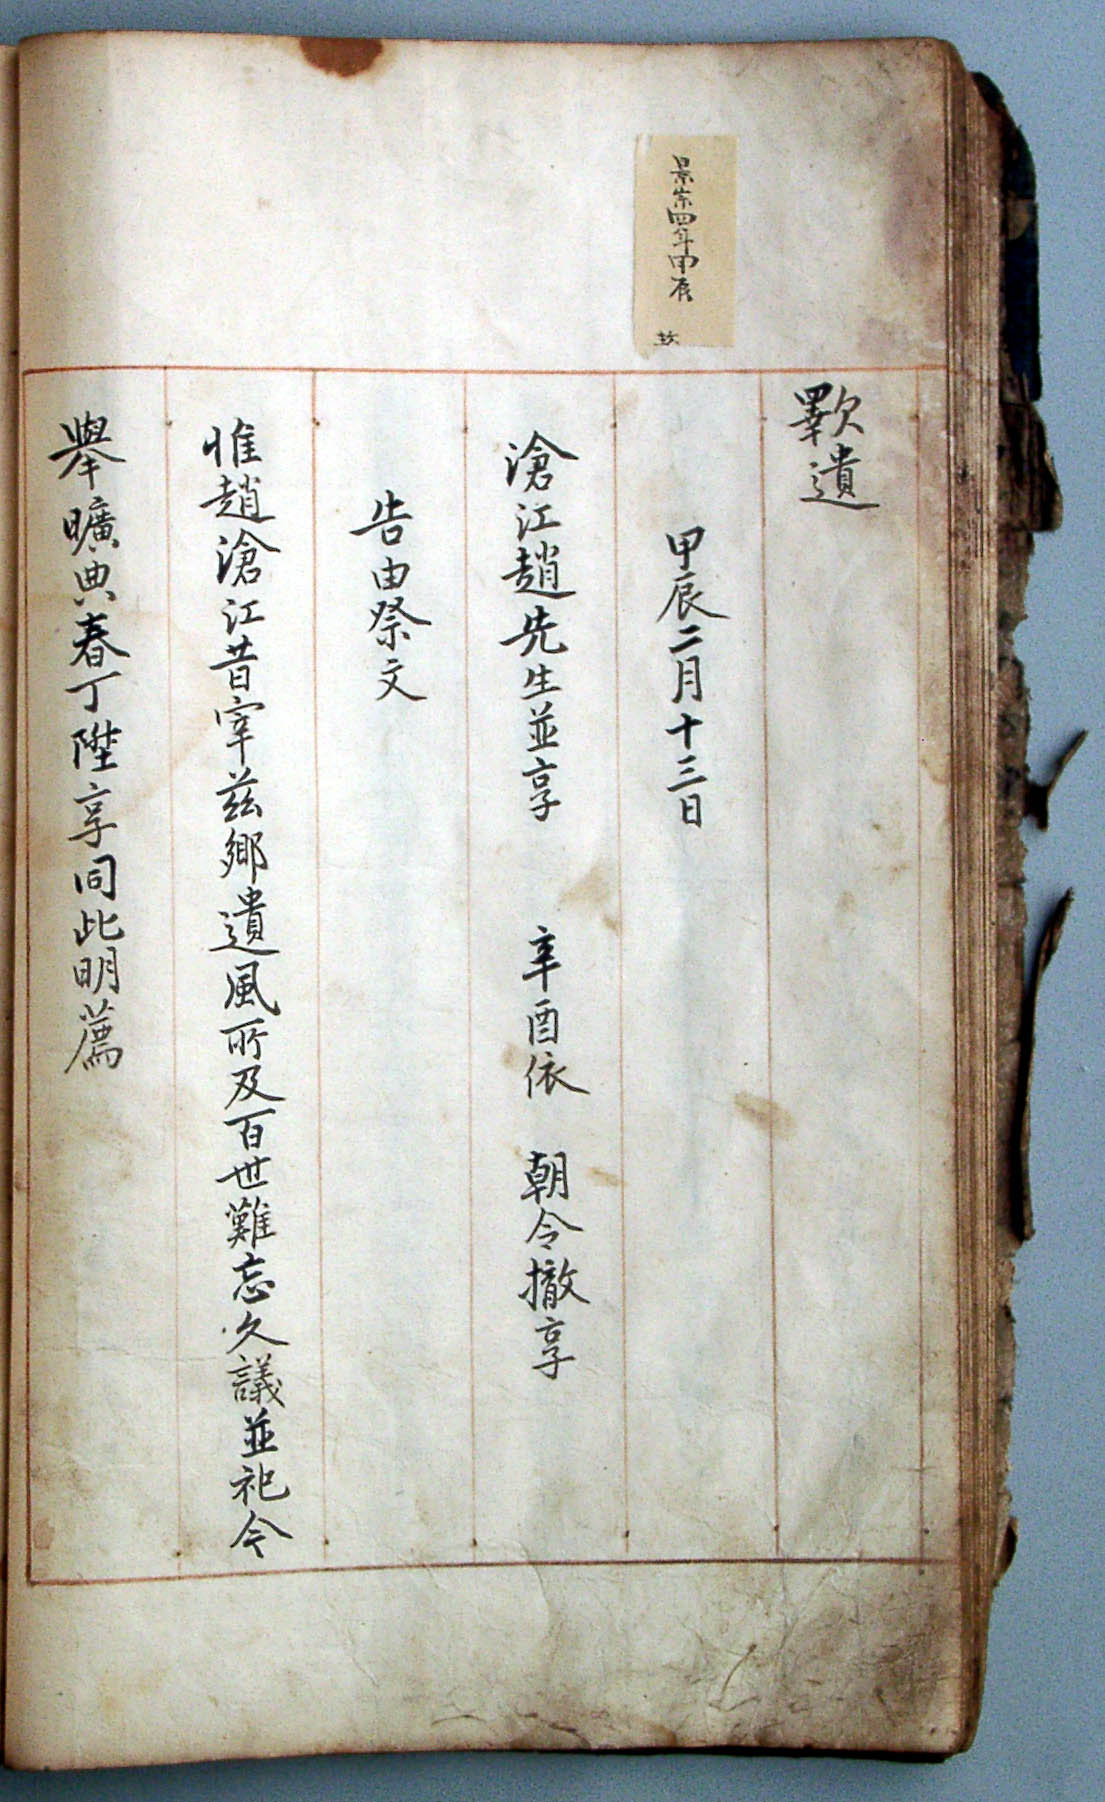 景宗四年甲辰
歝遺
甲辰二月十三日
滄江趙先生並享 辛酉依 朝令撤享
告由祭文
惟趙滄江昔宰茲鄉遺風所及百世難忘久議並祀今
舉曠典春丁陞享同此明薦